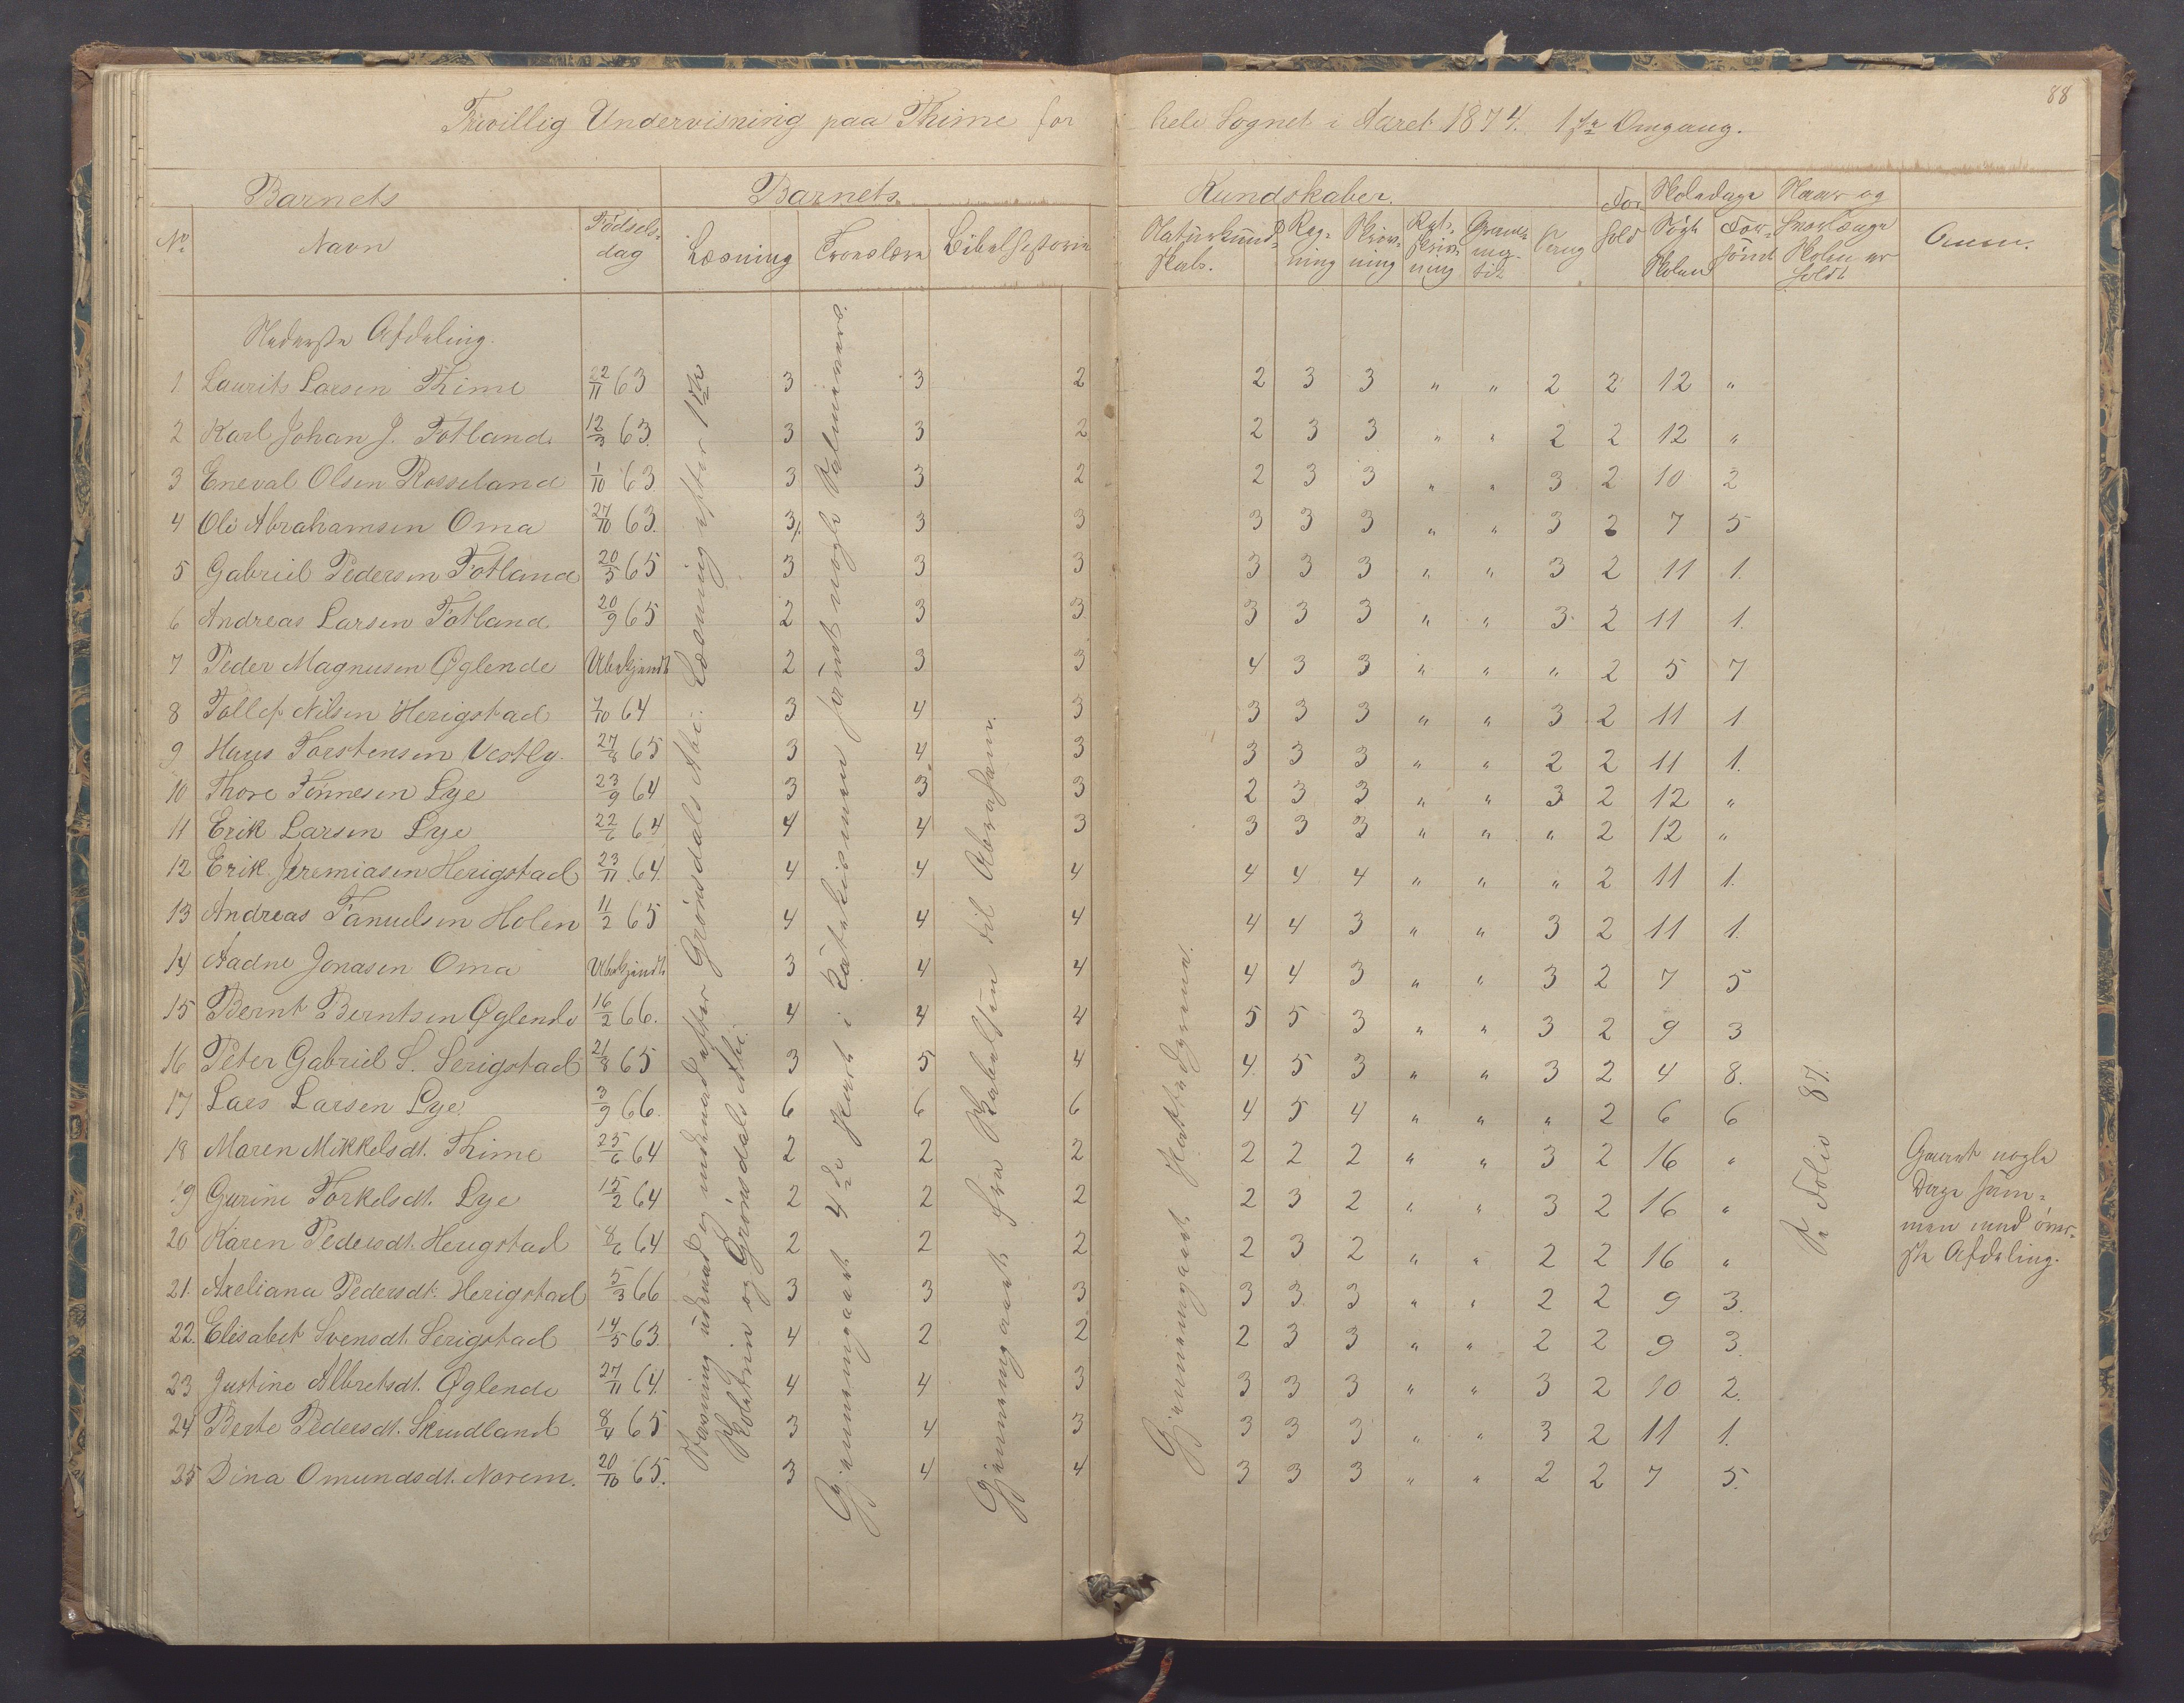 88
Frivillig Undervisning paa Thime for hele Sognet i Aaret 1874. 1ste Omgang.
Barnets Barnets Kundskaber. For Skoledage Naar og
No Navn Fødselsdag Læsning Troeslære Bibelhistorie Naturkundskab. Regning Skrivning Retskrivning Grammatik Sang hold Søgt Skolen Forsømt hvorlænge Skolen er holdt Anm.
Nederste Afdeling.
1 Laurits Larsen Thime 22/11 63 3 3 2 2 3 3 " " 2 2 12 "
2 Karl Johan J. Fotland 12/3 63. 3 3 2 2 3 3 " " 2 2 12 "
3 Eneval Olsen Rosseland 1/10 63 3 3 2 2 3 3 " " 3 2 10 2
4 Ole Abrahamsen Oma 27/10 63. 3 3 3 3 3 3 " " 3 2 7 5
5 Gabriel Pedersen Fotland 20/5 65 3 3 3 3 3 3 " " 3 2 11 1.
6 Andreas Larsen Fotland 20/9 65 2 3 3 3 3 3 " " 3 2 11 1.
7 Peder Magnusen Øglende Ubekjendt 2 3 3 4 3 3 " " " 2 5 7
8 Tollef Nilsen Herigstad 7/10 64 3 4 3 3 3 3 " " 3 2 11 1
9 Hans Torstensen Vestly. 27/8 65 3 4 3 3 3 3 " " 2 2 11 1.
10 Thore Tønnesen Lye 23/9 64 3 3 3 2 3 3 " " 3 2 12 "
11 Erik Larsen Lye 22/6 64 4 4 3 3 3 3 " " " 2 12 "
12 Erik Jeremiasen Herigstad 23/11 64. 4 4 4 4 4 4 " " " 2 11 1.
13 Andreas Fanuelsen Holen 11/2 65 4 4 4 4 4 3 " " 3 2 11 1.
14 Aadne Jonasen Oma Ubekjendt 3 4 4 4 4 3 " " 3 2 7 5
15 Bernt Berntsen Øglende 16/2 66. 4 4 4 5 5 3 " " 3 2 9 3
16 Peter Gabriel S. Serigstad 21/8 65 3 5 4 4 5 3 " " 3 2 4 8.
17 Lars Larsen Lye 3/9 66. 6 6 6 4 5 4 " " " 2 6 6
18 Maren Mikkelsdt. Thime 25/6 64 2 2 2 2 2 2 " " 3 2 16 "
19 Gurine Torkelsdt. Lye 15/2 64 2 2 2 2 3 2 " " 3 2 16 "
20 Karen Pedersdt. Herigstad 8/6 64 2 2 2 2 3 2 " " 2 2 16 "
21. Axeliana Pedersdt. Herigstad 5/3 66 3 3 3 3 3 3 " " 2 2 9 3.
22. Elisabet Svensdt. Serigstad 14/5 63. 4 2 2 2 3 3 " " 2 2 9 3.
23 Justine Albretsdt. Øglende 27/11 64. 4 4 3 3 3 3 " " 3 2 10 2.
24 Berte Pedersdt. Skrudland 8/4 65 3 4 3 3 3 3 " " 3 2 11 1.
25 Dina Omundsdt. Norem. 20/10 65. 3 4 4 3 3 3 " " 2 2 7 5.
Stavning udenad og indenad efter Grønsdals Abc. Læsning efter 1ste
Skoletrin og Grønsdals Abc.
Gjennemgaaet 4de Part i Katekismen samt nogle Salmevers.
Gjennemgaaet fra Skabelsen til Abraham.
Gjennemgaaet Pattedyrene.
Se Folio 87.
Gaaet nogle
Dage sam-
men med øver-
ste Afdeling.